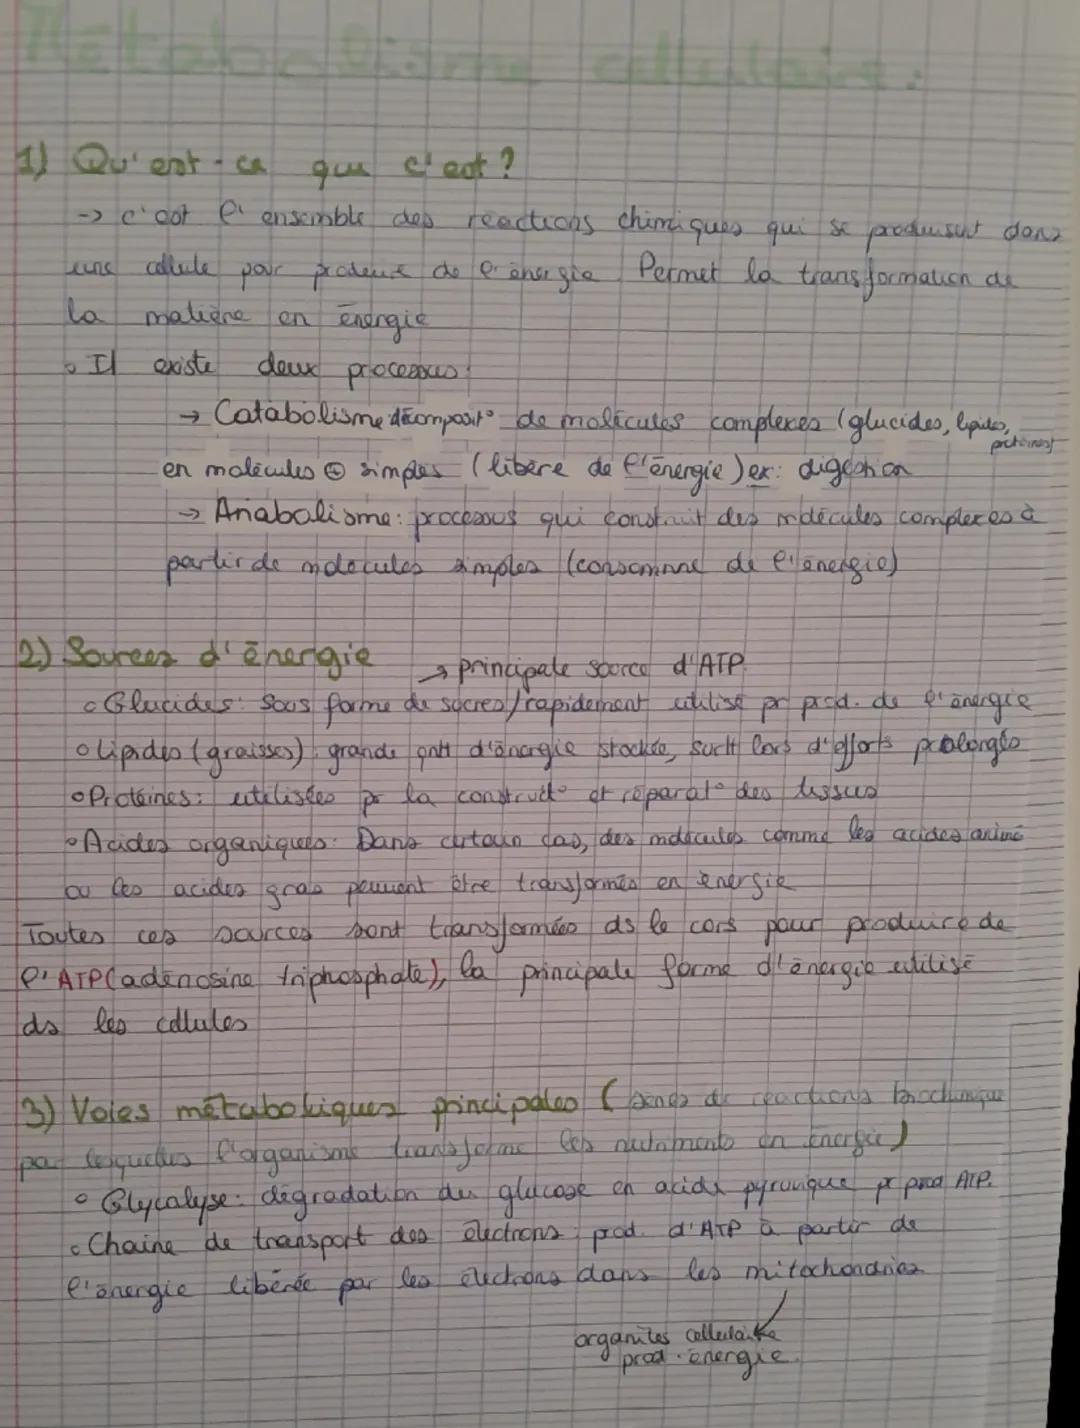 Métabolisme cellulaire :
1) Qu'est-ce que c'est ?
-> c'est l'ensemble des réactions chimiques qui se produisent dans
une cellule pour produire de l'énergie. Permet la transformation de
la matière en énergie
• Il existe deux processus :
→ Catabolisme décomposit° de molécules complexes (glucides, lipides,
protéines)
en molécules ⊕ simples (libère de l'énergie) ex: digestion
→ Anabolisme: processus qui construit des molécules complexes à
partir de molécules simples (consomme de l'énergie)
2) Sources d'énergie → principale source d'ATP.
o Glucides: Sous forme de sucres/rapidement utilisé pr prod. de l'énergie
o Lipides (graisses): grande qtt d'énergie stockée, surtt lors d'efforts prolongés
o Protéines: utilisées pr la construct° et réparat° des tissus
o Acides organiques: Dans certain cas, des molécules comme les acides aminé
ou les acides gras peuvent être transformés en énergie
Toutes ces sources sont transformées ds le cors pour produire de
l'ATP (adénosine triphosphate), la principale forme d'énergie utilisé
ds les cellules
3) Voies métaboliques principales ( de réactions biochimique
par lesquelles l'organisme transforme les nutriments en énergie)
o Glycolyse: dégradation du glucose en acide pyruvique pr prod ATP.
o Chaine de transport des électrons: prod. d'ATP à partir de
l'énergie libérée par les électrons dans les mitochondries
organites cellulaire
prod. énergie.